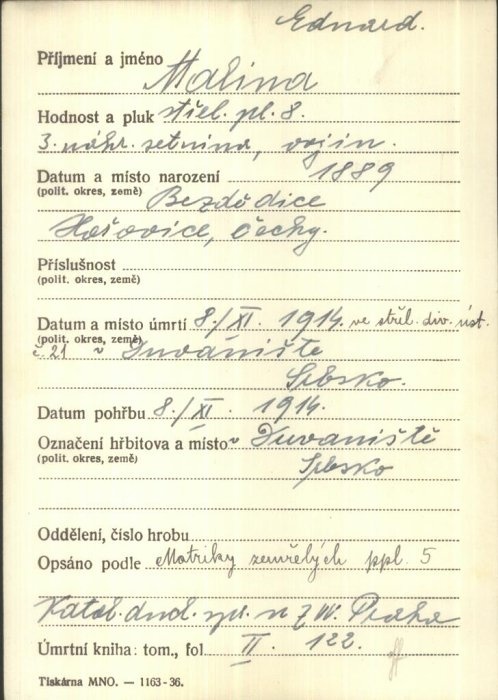 Eduard.
Příjmení a jméno Malina
Hodnost a pluk střel. pl. 8.
3. náhr. setnina, vojín.
Datum a místo narození 1889
(polit. okres, země) Bezdědice
Hořovice, Čechy.
Příslušnost
(polit. okres, země)
Datum a místo úmrtí 8./XI. 1914. ve střel. div. úst.
(polit. okres, země)
č. 21 v Duvaniště
Srbsko.
Datum pohřbu 8./XI. 1914.
Označení hřbitova a místo v Duvaniště
(polit. okres, země) Srbsko
Oddělení, číslo hrobu
Opsáno podle Matriky zemřelých ppl. 5
Katol. duch. spr. n Z.V.V. Praha
Úmrtní kniha: tom., fol II. 122.
Tiskárna MNO. — 1163-36.